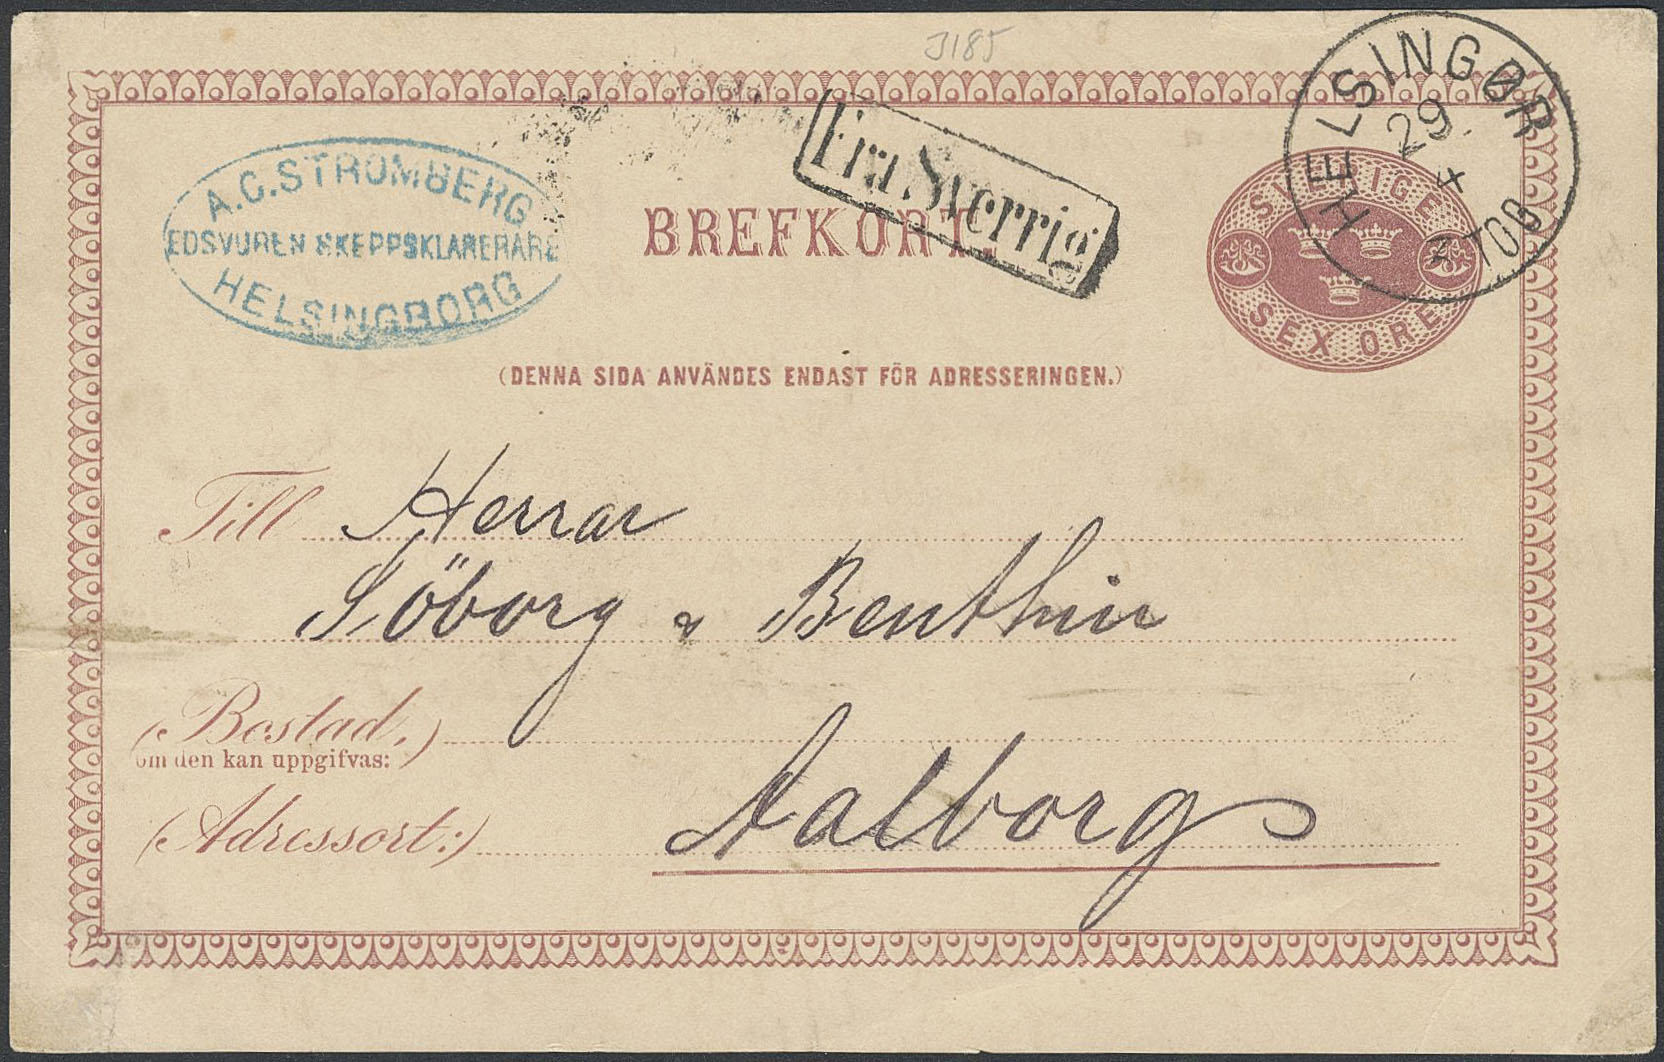 J185
HELSINGØR
29
4
3 TOG
Fra Sverrig
A.C. STRÖMBERG
EDSVUREN SKEPPSKLARERARE
HELSINGBORG
BREFKORT.
SVERIGE
SEX ÖRE
(DENNA SIDA ANVÄNDES ENDAST FÖR ADRESSERINGEN.)
Till Herrar
Söborg & Benthin
(Bostad,)
om den kan uppgifvas:
(Adressort:) Aalborg